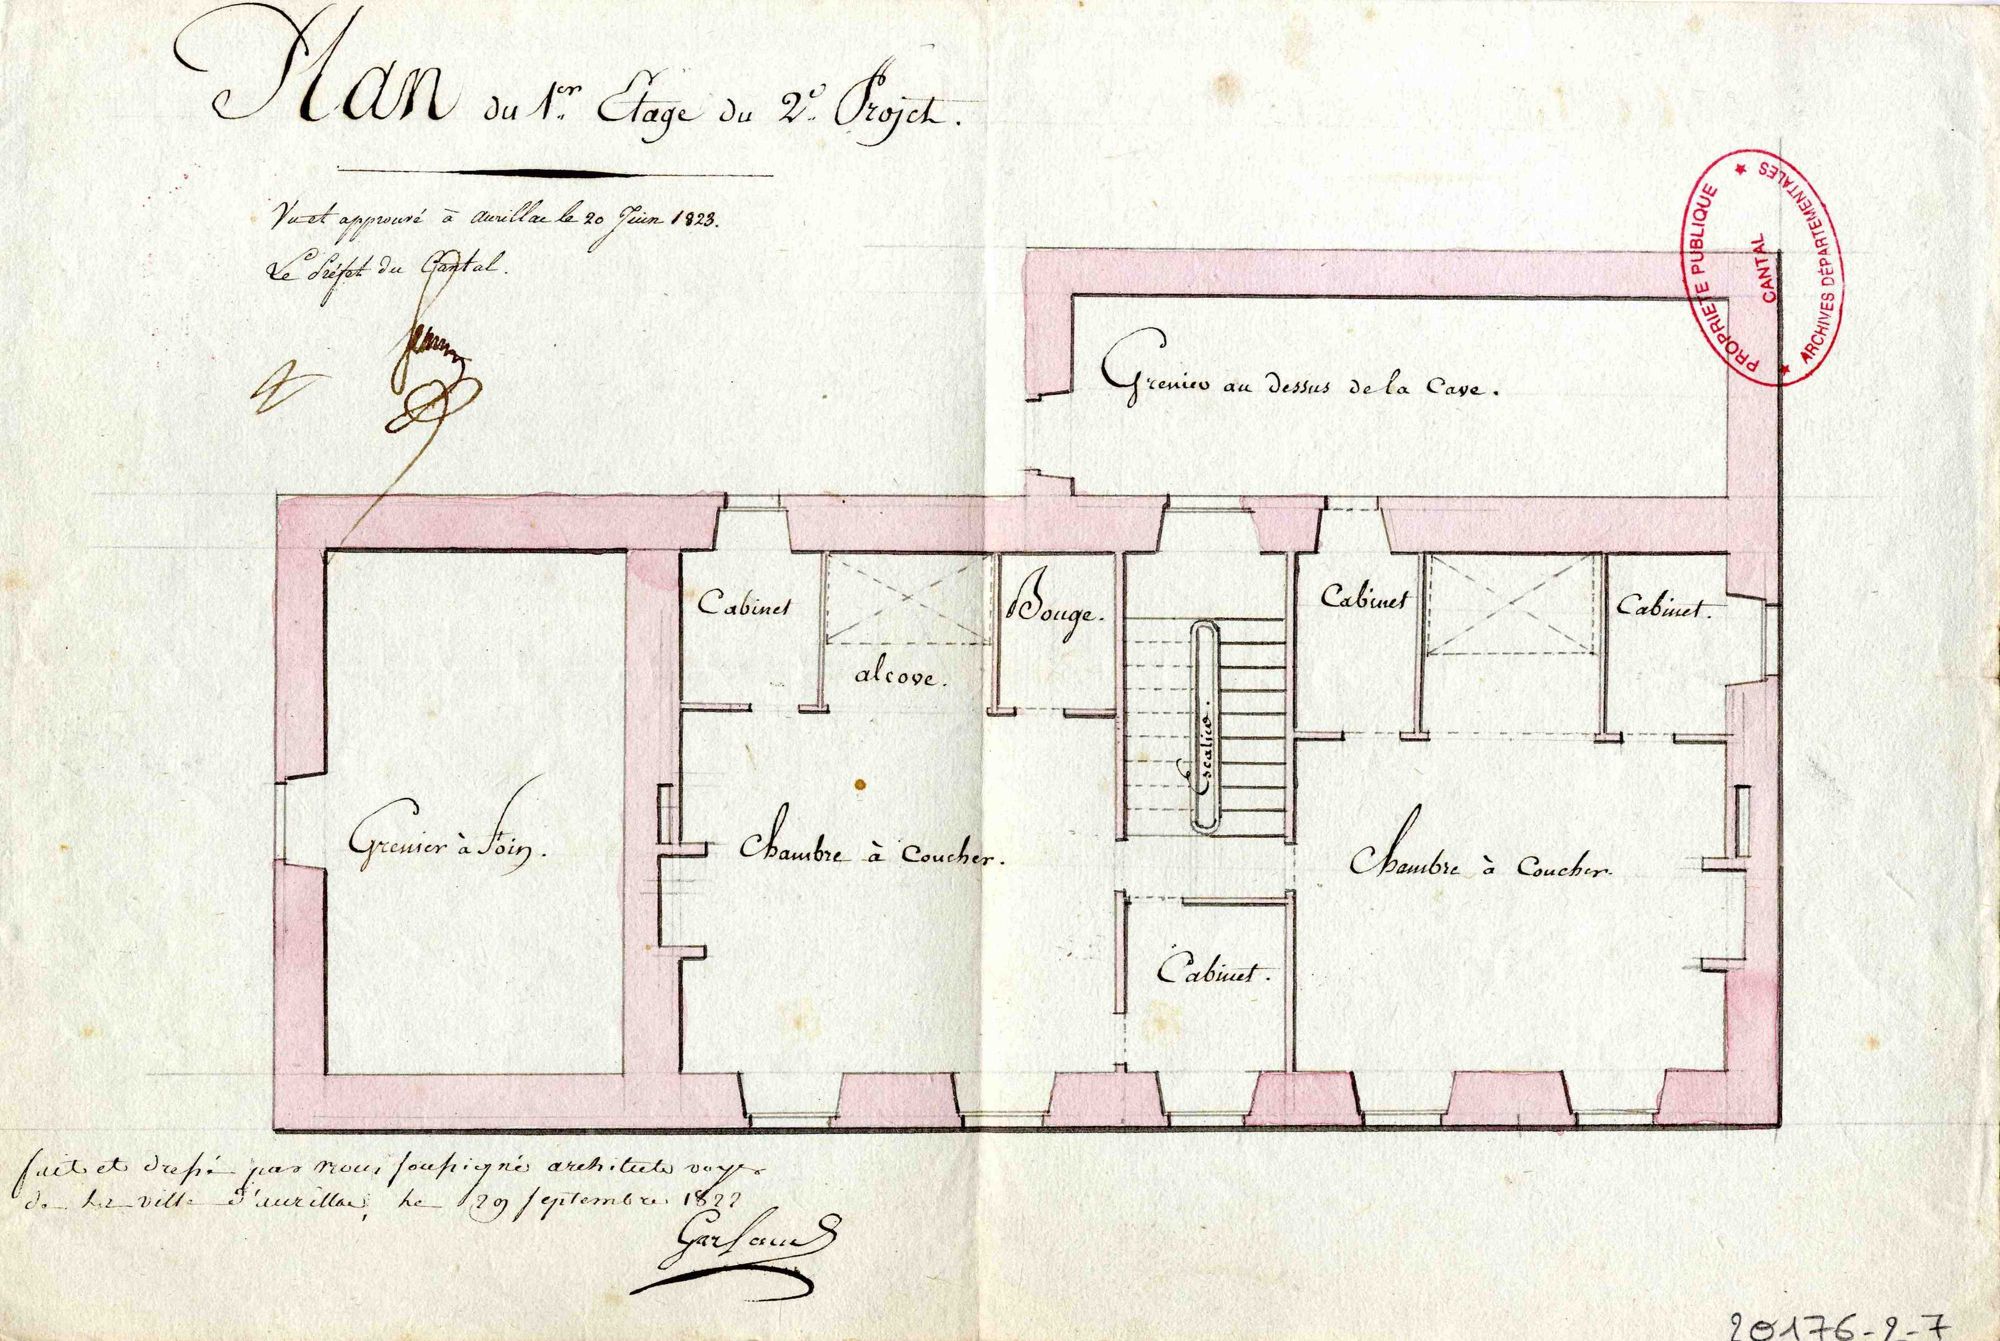 Plan du 1er Etage du 2e Projet.
Vu et approuvé à aurillac le 20 Juin 1823.
Le Préfet du Cantal.
PROPRIETE PUBLIQUE
ARCHIVES DÉPARTEMENTALES
CANTAL
Grenier au dessus de la Cave.
Cabinet
alcove.
Bouge.
Cabinet
Cabinet.
Escalier.
Grenier à foin.
Chambre à Coucher.
Chambre à Coucher.
Cabinet.
fait et dressé par nous soussigné architecte voyer
de la ville d'aurillac, le 29 septembre 1822
20176-2-7